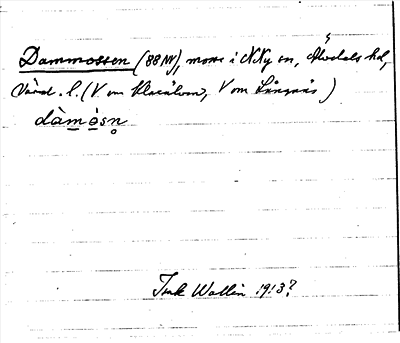 Dammossen (88 NV), mosse i N Ny sn, Älvdals hd,
Värml. l. (V om Klarälven, V om Långnäs)
dàmòsn̥
Isak Wallin 1913?